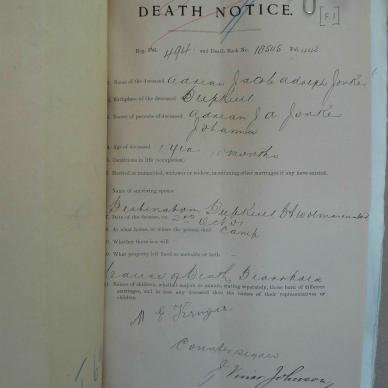 DEATH NOTICE.
[F.1]
Reg. Fol. 494 and Death Book No. 18505
1. Name of the deceased Adrian Jacob Adolph Jonke
2. Birthplace of the deceased
3. Names of parents of deceased Adrian J A Jonke
Johanna
4. Age of deceased 1 year 10 months
5. Condition in life (occupation)
6. Married or unmarried, widower or widow, mentioning other marriages if any have existed.
Name of surviving spouse
7. Date of the decease, on 2nd Oct 01
8. At what house, or where the person died Camp
9. Whether there is a will
10. What property left fixed or movable or both
Cause of Death Diarrhoea
11. Names of children, whether majors or minors, stating separately, those born of different
marriages, and in case any deceased then the names of their representatives or
children.
M E Kruger
Counter signed
Johnson